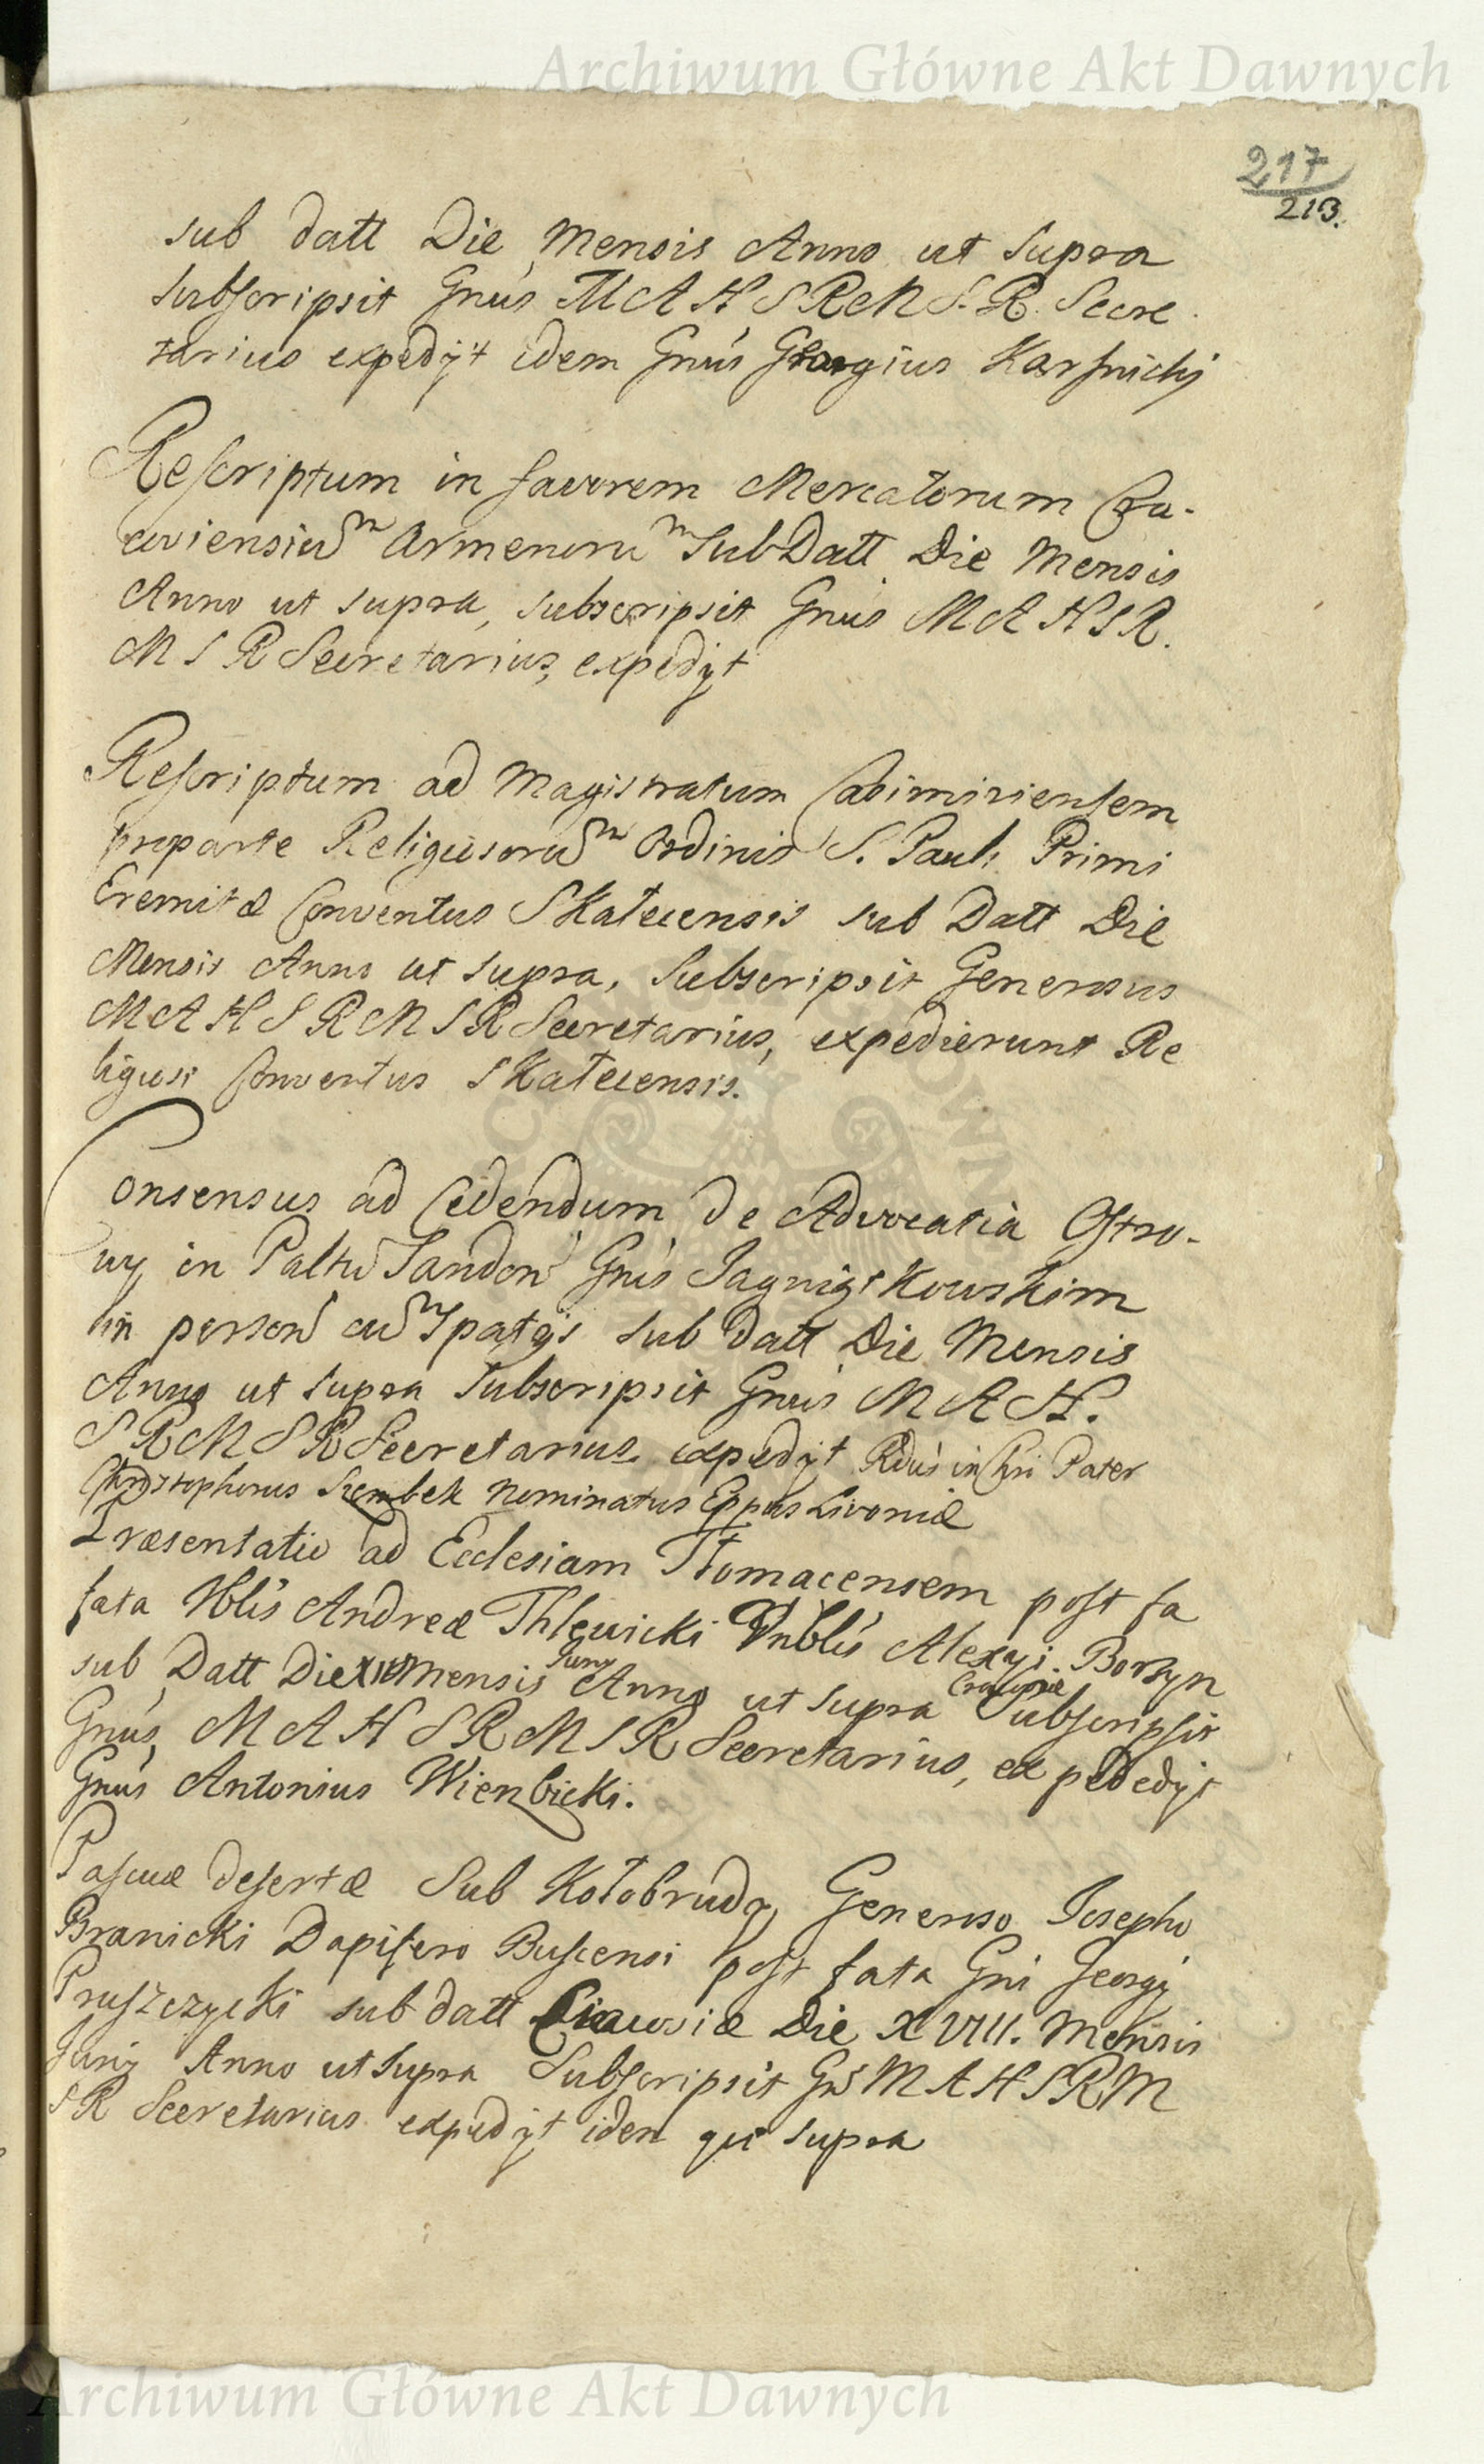 Archiwum Główne Akt Dawnych
217
213.
sub datt Die Mensis Anno ut supra
subscripsit Gnus M A H S R M S. R. Secre
tarius expedyt idem Gnus Georgius Karsnicki
Rescriptum in favorem Mercatorum Cra-
coviensium Armenorum sub Datt Die Mensis
Anno ut supra, subscripsit Gnus M A H S R.
M S R Secretarius, expedyt
Rescriptum ad Magistratum Casimiriensem
proparte Religiosorum Ordinis S. Pauli Primi
Eremitæ Conventus Skatecensis sub Datt Die
Mensis Anno ut supra, Subscripsit Generosus
M A H S R M S R Secretarius, expedierunt Re
ligiosi Conventus Skatecensis.
Consensus ad Cedendum de Advocatia Ostro-
wy in Palttu Sandom Gnis Jagnigtkowskim
in person cum Spatgis sub datt Die Mensis
Anno ut supra Subscripsit Gnus M A H.
S R M S R Secretarius expedyt Rdus in Chri Pater
Chrystophorus Szembek Nominatus Eppus Livoniæ
Præsentatio ad Ecclesiam Tłomacensem post fa
fata Vblis Andreæ Thlewicki Vnblis Alexyi Borzyn
sub Datt Die XIV Mensis Juny Anno ut supra Cracoviæ Subscripsit
Gnus, M A H S R M S R Secretarius, expedyt
Gnus Antonius Wienbicki.
Pascuæ desertæ Sub Kołobrudą Generoso Josepho
Branicki Dapifero Buscensi post fata Gni Georgy
Pruszczycki sub datt Cracoviæ Die XVIII. Mensis
Juny Anno ut supra Subscripsit Gns M A H S R M
S R Secretarius expedyt idem qui supra
Archiwum Główne Akt Dawnych